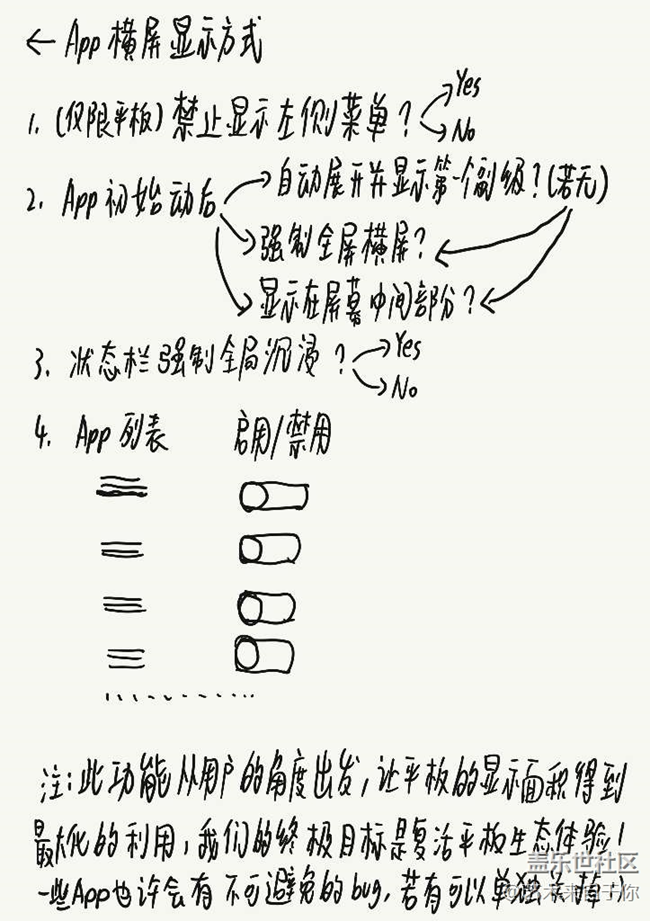 ← App 横屏显示方式
1. (仅限平板) 禁止显示左侧菜单? Yes
No
2. App 初始动后 自动展开并显示第一个副级?(若无)
强制全屏横屏?
显示在屏幕中间部分?
3. 状态栏强制全局沉浸? Yes
No
4. App 列表 启用/禁用
注:此功能从用户的角度出发,让平板的显示面积得到
最大化的利用,我们的终极目标是复活平板生态体验!
一些App也许会有不可避免的bug,若有可以单独
盖乐世社区